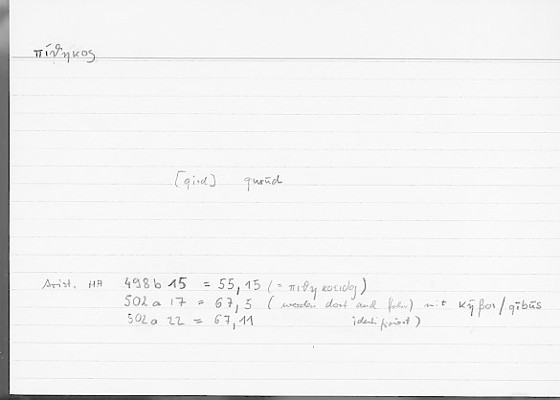 πίθηκος
[qird] qurūd
Arist. HA 498b 15 = 55,15 (= πιθηκοειδῆ)
502a 17 = 67,5 (werden dort mit κῆβοι/qībūs
502a 22 = 67,11 identifiziert)